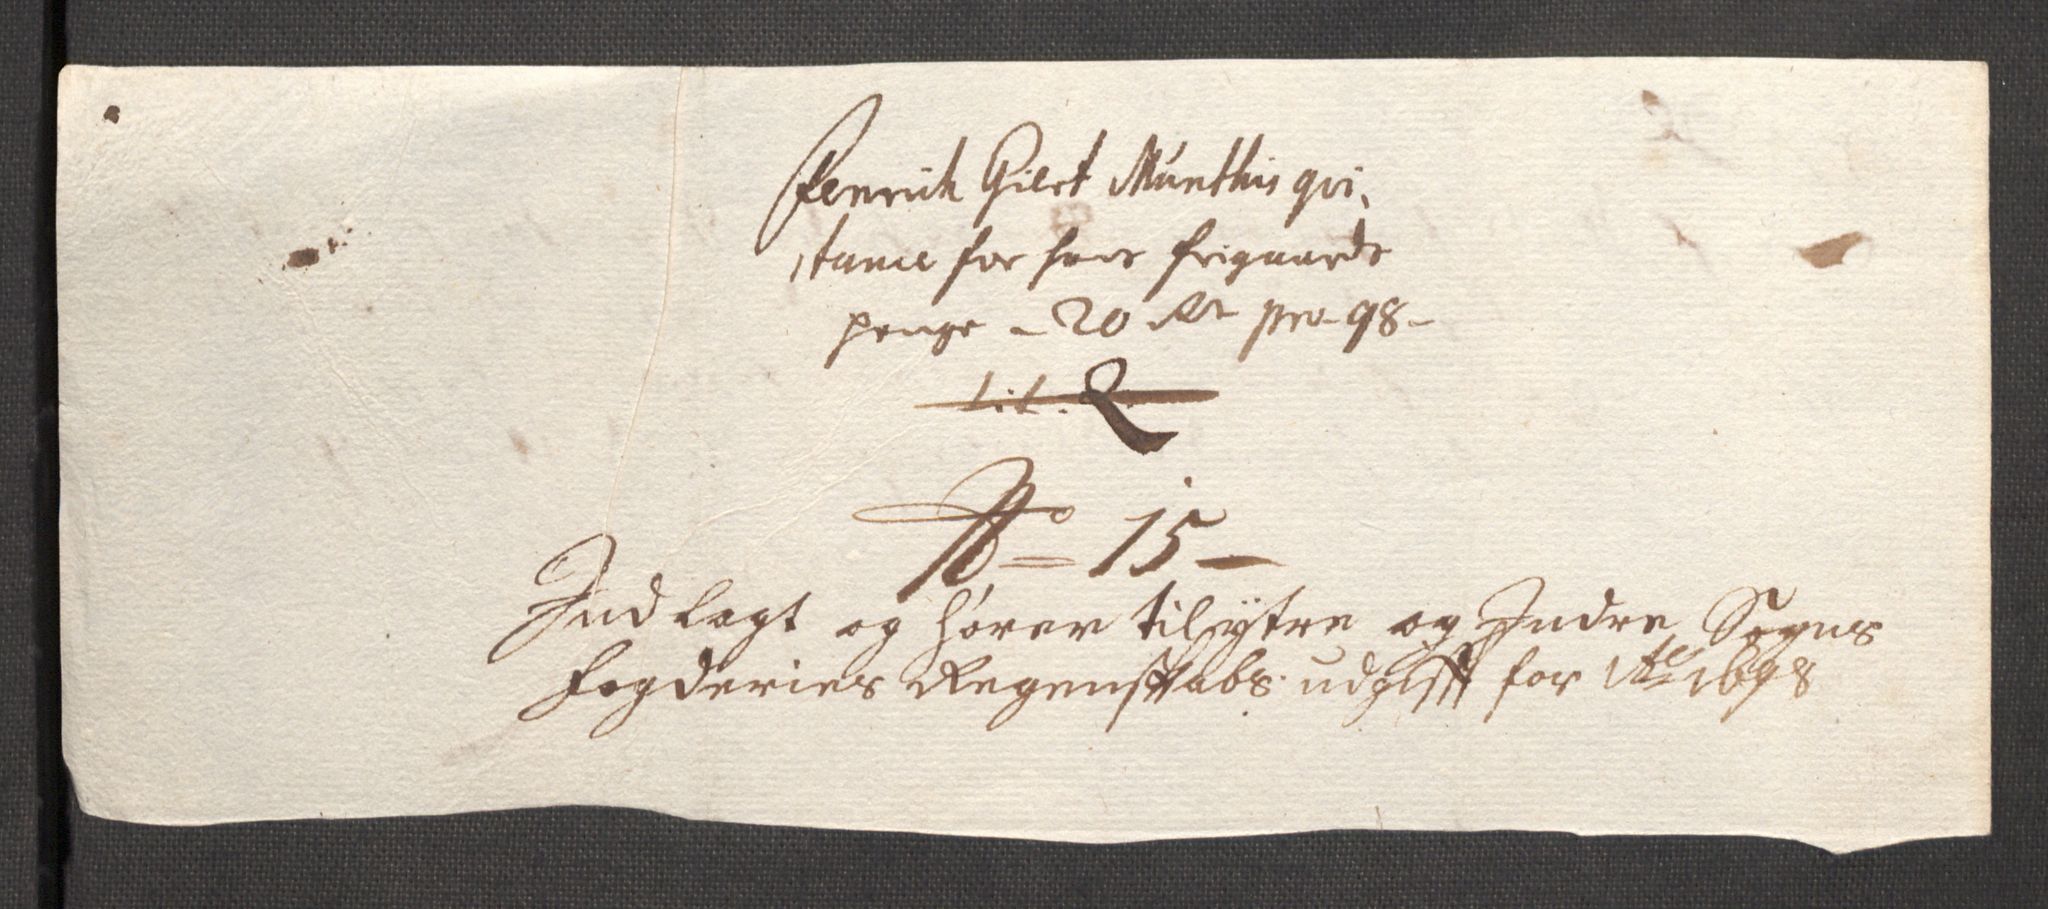 Henrich Giert Munthis qvi,
tance for hans frigaards
penge – 20 Rdr pro – 98 –
Lit. Q.
No = 15 –
Indlagt og hører til Ÿtre og Indre Sogns
fogderies Regenskabs udgifft for Ao 1698